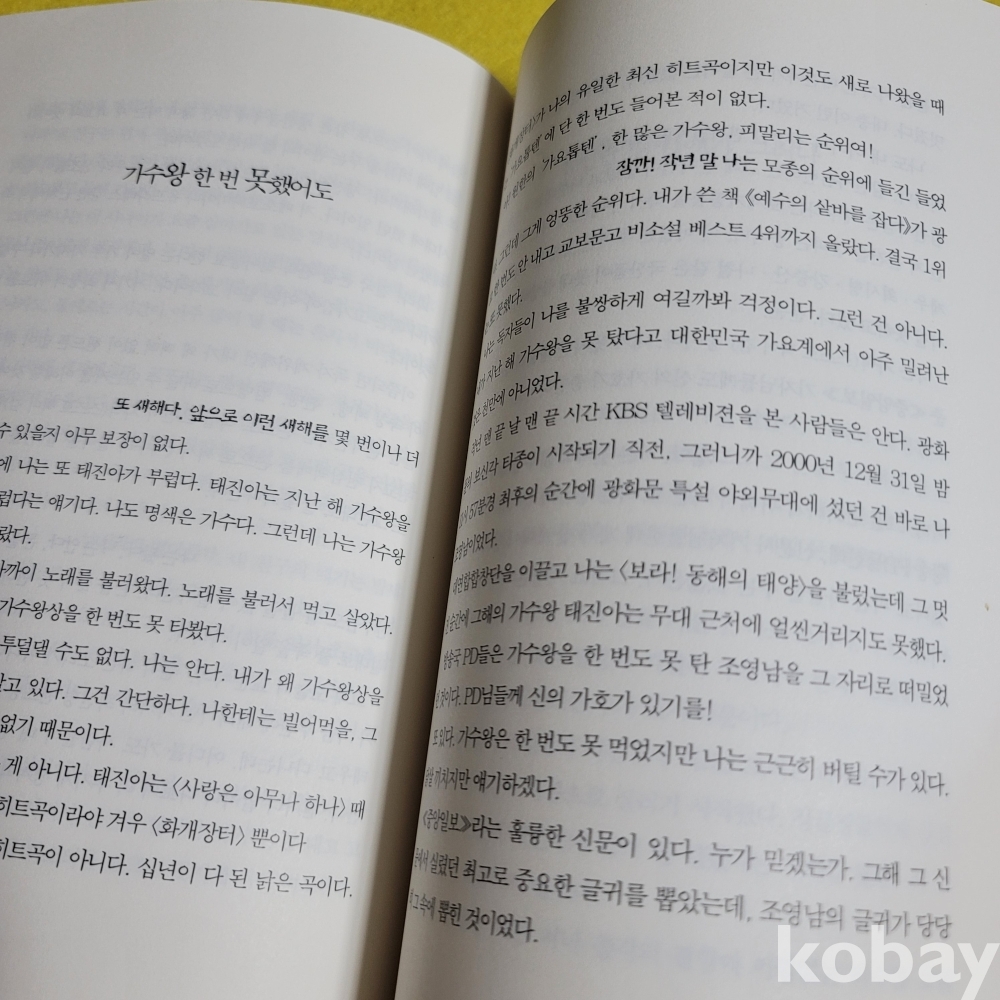 가수왕 한 번 못했어도
또 새해다. 앞으로 이런 새해를 몇 번이나 더
수 있을지 아무 보장이 없다.
에 나는 또 태진아가 부럽다. 태진아는 지난 해 가수왕을
럽다는 얘기다. 나도 명색은 가수다. 그런데 나는 가수왕
랐다.
가까이 노래를 불러왔다. 노래를 불러서 먹고 살았다.
가수왕상을 한 번도 못 타봤다.
투덜댈 수도 없다. 나는 안다. 내가 왜 가수왕상을
알고 있다. 그건 간단하다. 나한테는 빌어먹을, 그
없기 때문이다.
게 아니다. 태진아는 〈사랑은 아무나 하나〉 때
히트곡이라야 겨우 〈화개장터〉 뿐이다
히트곡이 아니다. 십년이 다 된 낡은 곡이다.
가 나의 유일한 최신 히트곡이지만 이것도 새로 나왔을 때
'가요톱텐'에 단 한 번도 들어본 적이 없다.
'가요톱텐', 한 많은 가수왕, 피말리는 순위여!
잠깐! 작년 말 나는 모종의 순위에 들긴 들었
그런데 그게 엉뚱한 순위다. 내가 쓴 책 《예수의 샅바를 잡다》가 광
한 번도 안 내고 교보문고 비소설 베스트 4위까지 올랐다. 결국 1위
못했다.
나는 독자들이 나를 불쌍하게 여길까봐 걱정이다. 그런 건 아니다.
지난 해 가수왕을 못 탔다고 대한민국 가요계에서 아주 밀려난
천만에 아니었다.
작년 맨 끝 날 맨 끝 시간 KBS 텔레비전을 본 사람들은 안다. 광화
보신각 타종이 시작되기 직전, 그러니까 2000년 12월 31일 밤
57분경 최후의 순간에 광화문 특설 야외무대에 섰던 건 바로 나
조영남이었다.
연합합창단을 이끌고 나는 〈보라! 동해의 태양〉을 불렀는데 그 멋
순간에 그해의 가수왕 태진아는 무대 근처에 얼씬거리지도 못했다.
방송국 PD들은 가수왕을 한 번도 못 탄 조영남을 그 자리로 떠밀었
것이다. PD님들께 신의 가호가 있기를!
또 있다. 가수왕은 한 번도 못 먹었지만 나는 근근히 버틸 수가 있다.
까치지만 얘기하겠다.
《중앙일보》라는 훌륭한 신문이 있다. 누가 믿겠는가. 그해 그 신
문에서 실렸던 최고로 중요한 글귀를 뽑았는데, 조영남의 글귀가 당당
그 속에 뽑힌 것이었다.
kobay